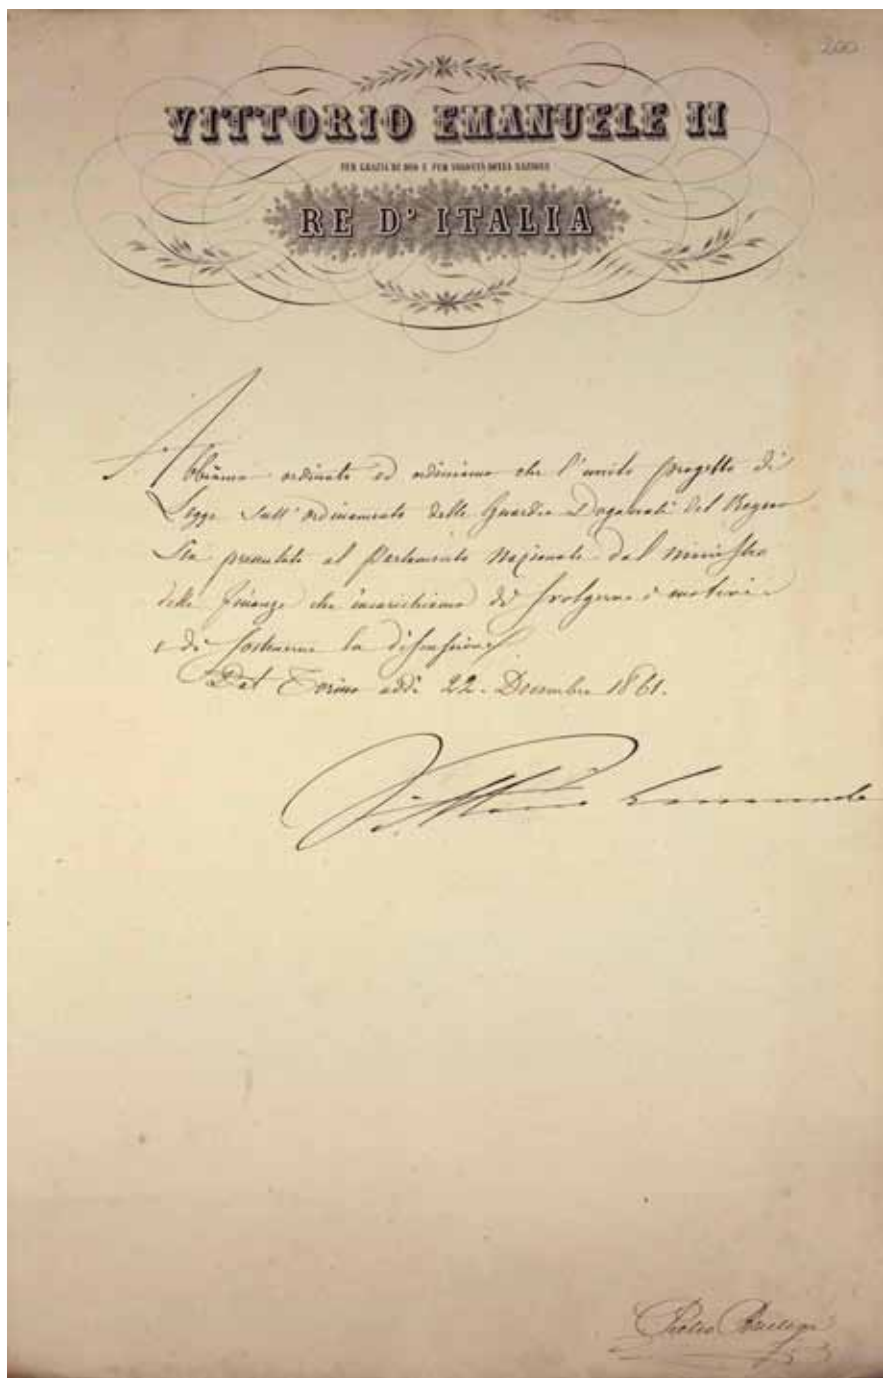 200
VITTORIO EMANUELE II
PER GRAZIA DI DIO E PER VOLONTÀ DELLA NAZIONE
RE D'ITALIA
Abbiamo ordinato ed ordiniamo che l'unito progetto di
Legge sull'ordinamento delle Guardie Doganali del Regno
sia presentato al Parlamento Nazionale dal ministro
delle finanze che incarichiamo di svolgerne i motivi
e di sostenerne la discussione.
Dat Torino addì 22. Dicembre 1861.
Vittorio Emanuele
Pietro Bastogi